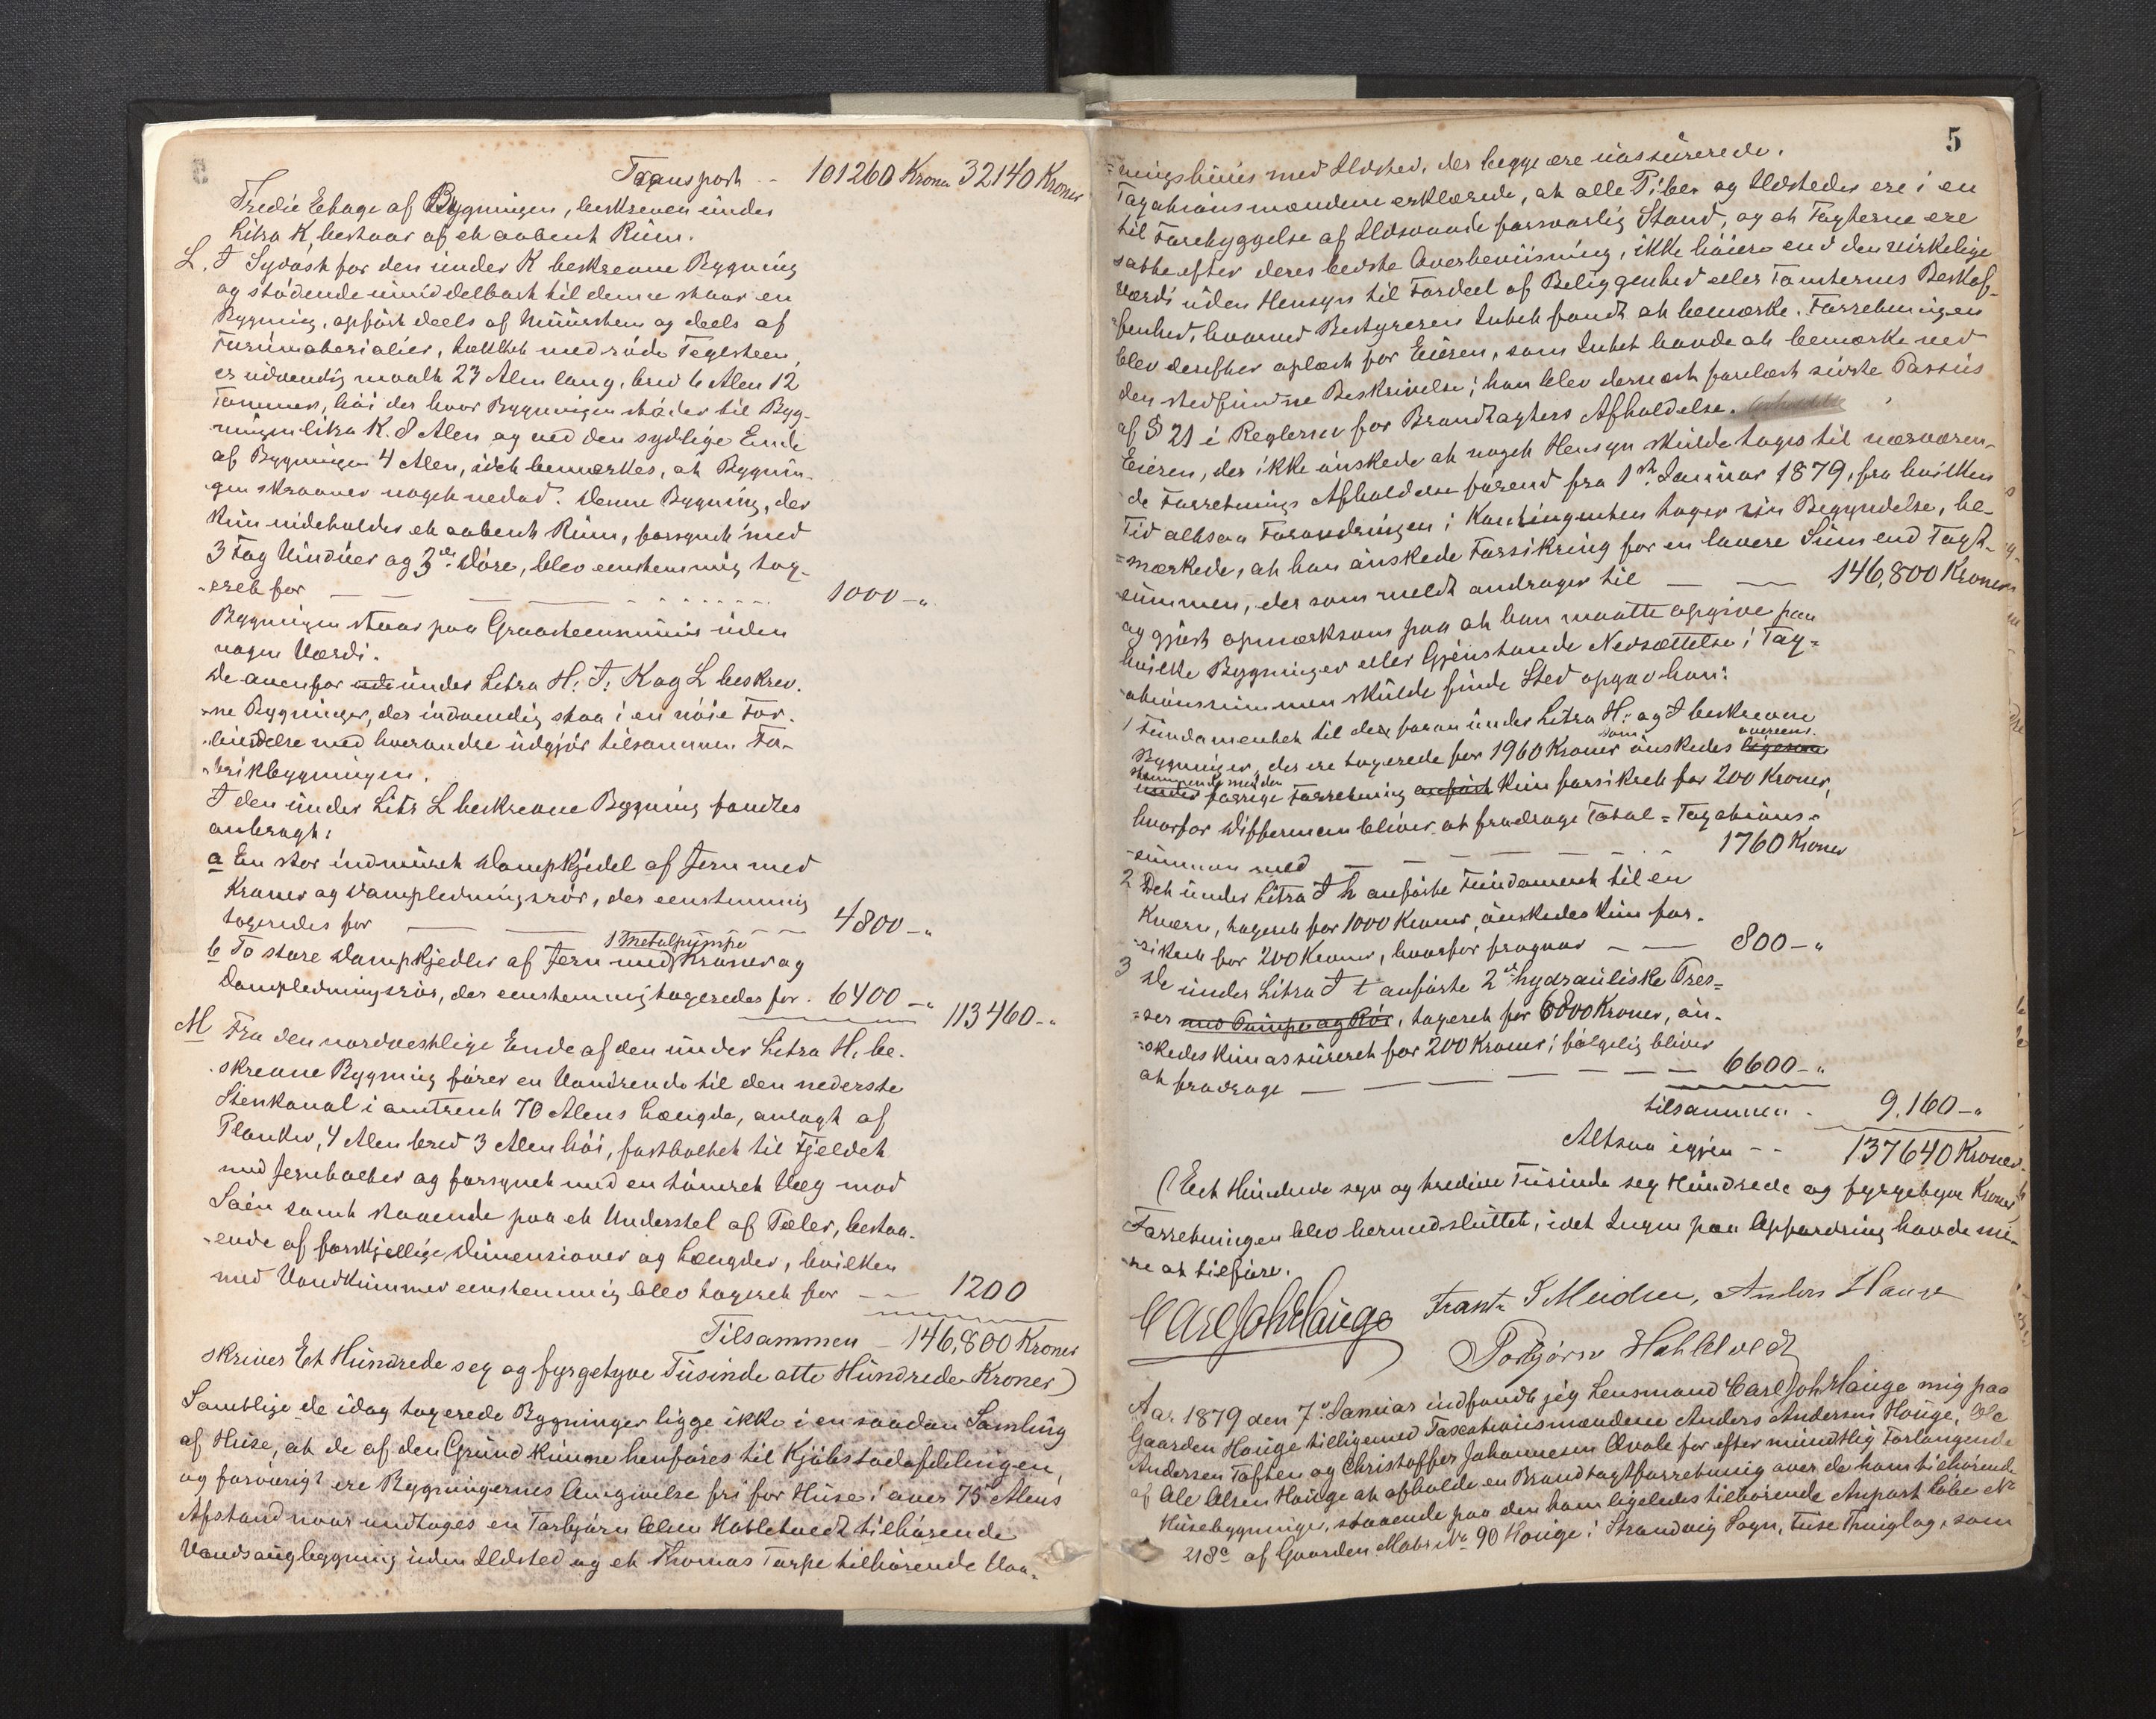 Transport - 101260 Kroner 32140 Kroner
Tredie Etage af Bygningen, beskreven under
Litra K bestaar af et aabent Rum.
L. I Sydost for den under K beskrevne Bygning
og stödende umiddelbart til denne staar en
Bygning, opfört deels af Muursteen og deels af
Furumaterialier, tækket med röde Teglsteen,
er udvendig maalt 27 Alen lang, bred 6 Alen 12
Tommer, höi der hvor Bygningen stöder til Byg-
ningen litra K. 8 Alen og ved den sydlige Ende
af Bygningen 4 Alen, idet bemærkes, at Bygnin-
gen skraaner noget nedad. Denne Bygning, der
kun indeholder et aabent Rum, forsynet med
3 Fag Vinduer og 3de Döre, blev eenstemmig tax-
eret for — — — 1000 - "
Bygningen staar paa Graasteensmuur uden
nogen Værdi.
De ovenfor under Litra H. I. K og L beskrev-
ne Bygninger, der indvendig staa i en nöie For-
bindelse med hverandre udgjör tilsammen Fa-
brikbygningen.
I den under Litr L beskrevne Bygning fandtes
anbragt:
a En stor indmuret Dampkjedel af Jern med
Kraner og Dampledningsrör, der eenstemmig
taxeredes for — — — 4800 - "
1 Metalpumpe
b To store Dampkjedler af Jern med Kraner og
Dampledningsrör, der eenstemmig taxeredes for. 6400 - "
113460 - "
M Fra den nordvestlige Ende af den under Litra H. be-
skrevne Bygning förer en Vandrende til den nederste
Stenkanal i omtrent 70 Alens Længde, anlagt af
Planker, 4 Alen bred 3 Alen höi, fastboltet til Fjeldet
med Jernbolter og forsynet med en tömret Væg mod
Söen samt staaende paa et Understel af Pæler, bestaa-
ende af forskjellige Dimensioner og Længder, hvilken
med Vandkummer eenstemmig blev taxeret for — 1200
Tilsammen - 146,800 Kroner
skriver Et Hundrede sex og fyrgetyve Tusinde otte Hundrede Kroner)
Samtlige de idag taxerede Bygninger ligge ikke i en saadan Samling
af Huse, at de af den Grund kunne henföres til Kjöbstadafdelingen,
og forövrigt ere Bygningernes Omgivelse fri for Huse i over 75 Alens
Afstand naar undtages en Torbjörn Olsen Hatletvedt tilhörende
Vandsaugbygning uden Ildsted og et Thomas Torpe tilhörende Vaa-
5
-ningshuus med Ildsted, der begge ere uassurerede.
Taxationsmændene erklærede, at alle Piber og Ildsteder ere i en
til Forebyggelse af Ildsvaade forsvarlig Stand, og at Taxterne ere
satte efter deres bedste Overbeviisning, ikke höiere end den virkelige
Værdi uden Hensyn til Fordeel af Beliggenhed eller Tomternes Beskaf-
fenhed, hvorved Bestyreren Intet fandt at bemærke. Forretningen
blev derefter oplæst for Eieren, som Intet havde at bemærke ved
den stedfundne Beskrivelse; han blev dernæst forelæst sidste Passus
af § 21 i Reglerne for Brandtaxters Afholdelse.
Eieren, der ikke önskede at noget Hensyn skulde tages til nærværen-
de Forretnings Afholdelse förend fra 1ste Januar 1879, fra hvilken
Tid altsaa Forandringen i Kontingenten tager sin Begyndelse, be-
=mærkede, at han önskede Forsikring for en lavere Sum end Taxt-
summen, der som meldt andrager til — — 146,800 Kroner
og gjort opmærksom paa at han maatte opgive paa
hvilke Bygninger eller Gjenstande Nedsættelse i Tax-
ationssummen skulde finde Sted opgav han:
1 Fundamentet til de foran under Litra H. og I beskrevne
som overeens-
Bygninger, der ere taxerede for 1960 Kroner önskedes ligesom
stemmende med den
under forrige Forretning anfört kun forsikret for 200 Kroner,
hvorfor Differencen bliver at fradrage Total-Taxations-
summen med — — — 1760 Kroner
2 Det under Litra I h anförte Fundament til en
Kværn, taxeret for 1000 Kroner, önskedes kun for-
sikret for 200 Kroner, hvorfor fragaar — — 800 - "
3 De under Litra I t anförte 2de hydrauliske Pres-
ser med Pumper og Rör, taxeret for 6800 Kroner, ön-
skedes kun assureret for 200 Kroner; fölgelig bliver
at fradrage — — — — 6600 - "
tilsammen . 9.160 - "
Altsaa igjen - - 137640 Kroner
(Eet Hundrede syv og tredive Tusinde sex Hundrede og fyrgetyve Kroner)
Forretningen blev hermed sluttet, idet Ingen paa Opfordring havde me-
re at tilföre.
Carl Joh Hauge Frantz Anders Hauge
Torbjörn Hatletvedt
Aar 1879 den 7de Januar indfandt jeg Lensmand Carl Joh Hauge mig paa
Gaarden Hauge tilligemed Taxationsmændene Anders Andersen Hauge, Ole
Andersen Toften og Christoffer Johannesen Qvale for efter mundtlig Forlangende
af Ole Olsen Hauge at afholde en Brandtaxtforretning over de ham tilhörende
Husebygninger, staaende paa den ham ligeledes tilhörende Anpart Löbe No
218a af Gaarden Matr No 90 Hauge i Strandvig Sogn, Fuse Thinglag, som